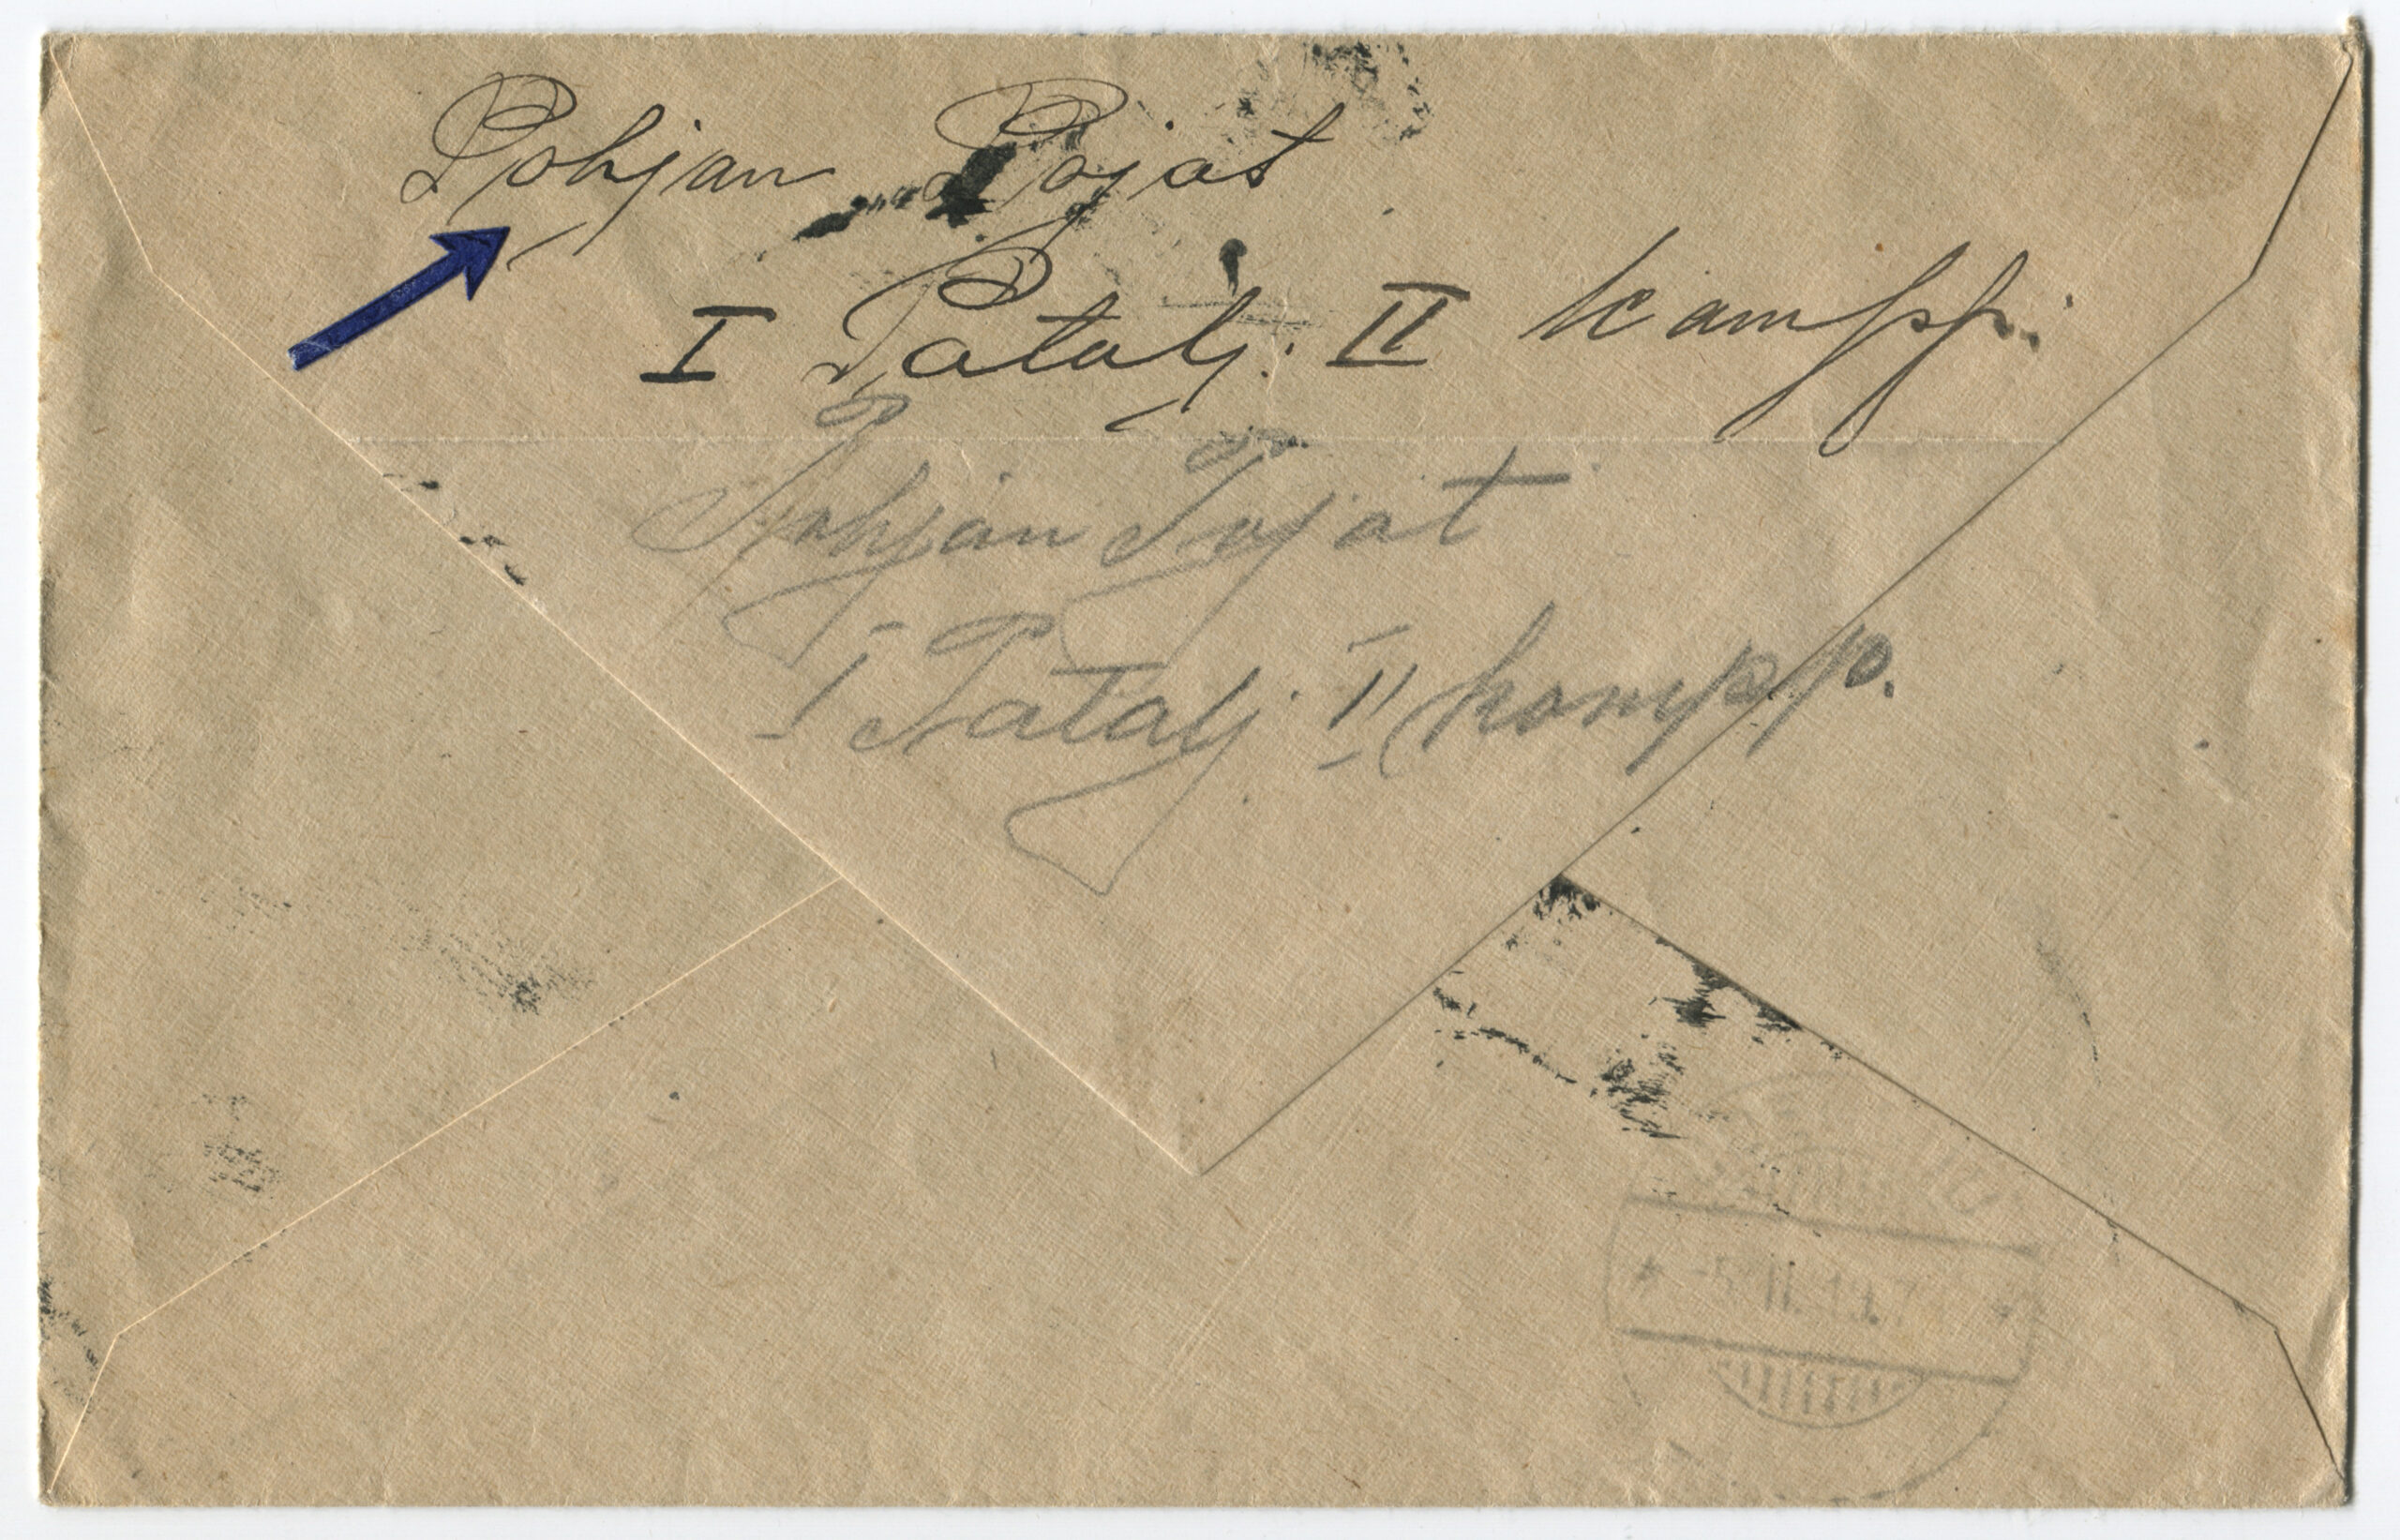 Pohjan Pojat
I Patalj. II kompp.
Pohjan Pojat
I Patalj. II kompp.